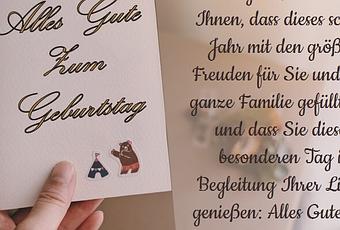 Alles Gute
Zum
Geburtstag
Ihnen, dass dieses
Jahr mit den
Freuden für Sie und
ganze Familie gefüllt
und dass Sie
besonderen Tag
Begleitung Ihrer
genießen: Alles Gute